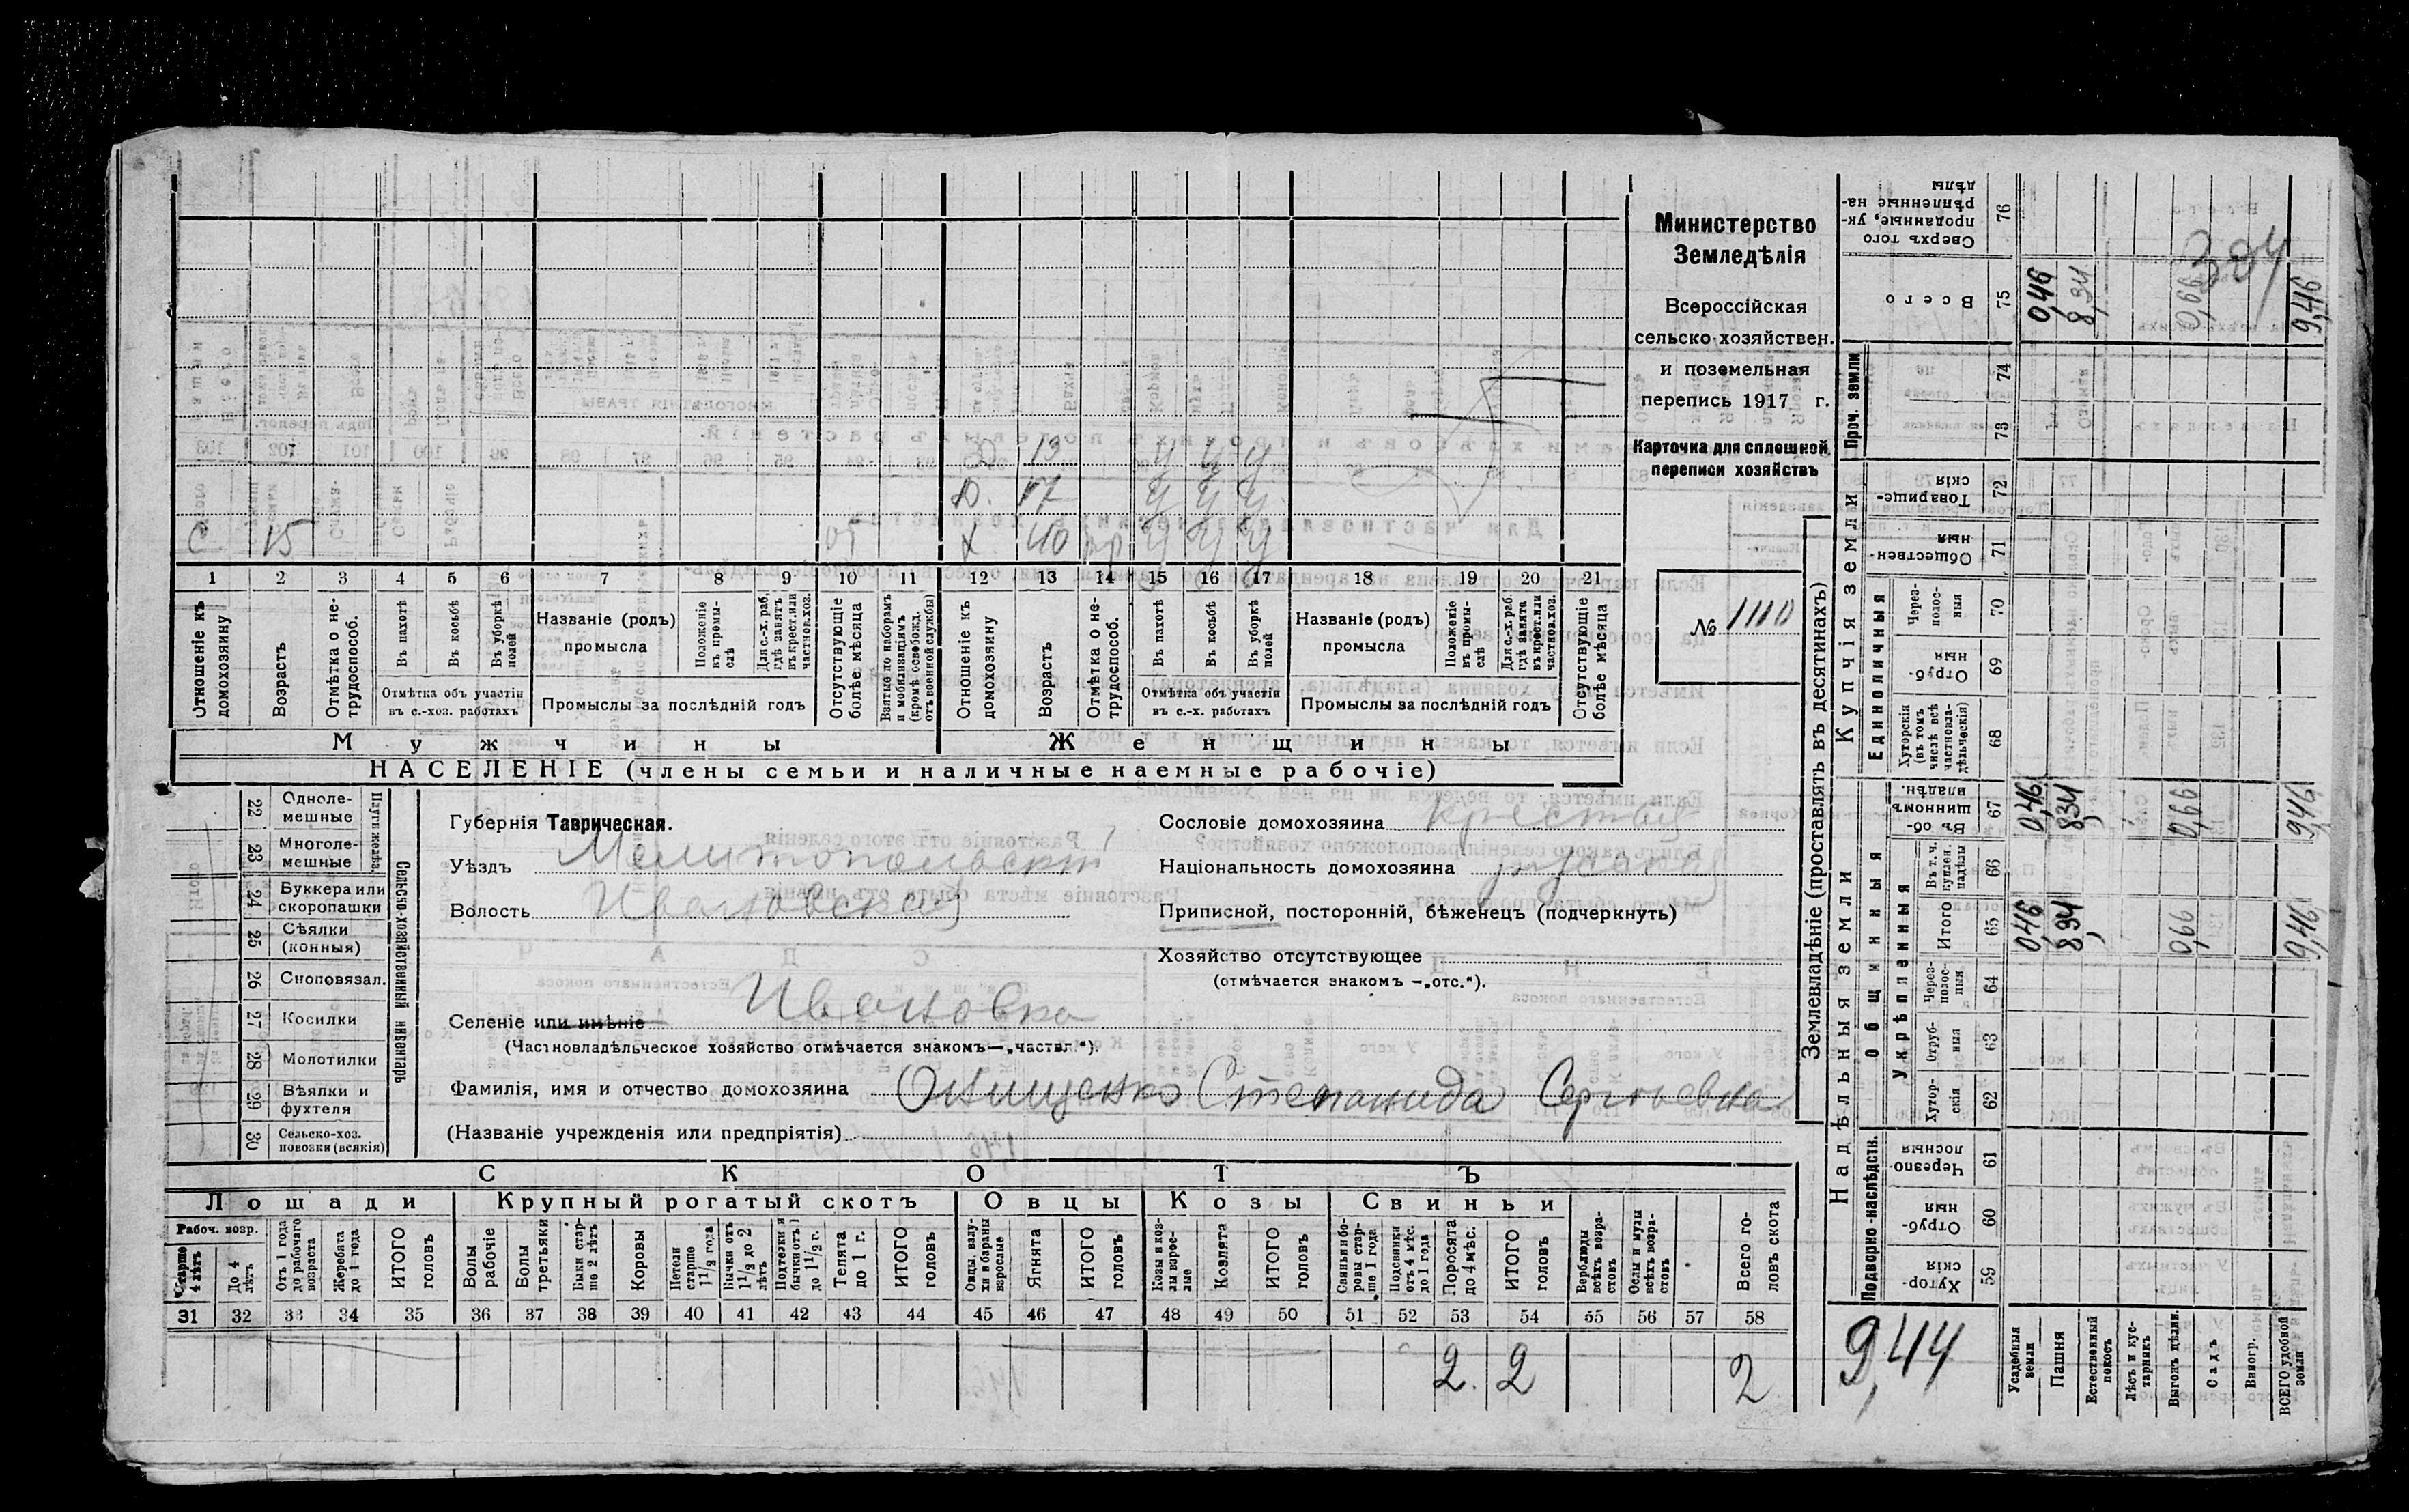 Министерство
Земледѣлія
Всероссійская
сельско-хозяйствен.
и поземельная
перепись 1917 г.
Карточка для сплошной
переписи хозяйствъ
№ 1110
Д 13 У У У
Д. 17 У У У
С. 15 от Х 40 пр У У У
1 2 3 4 5 6 7 8 9 10 11 12 13 14 15 16 17 18 19 20 21
Отношеніе къ домохозяину
Возрастъ
Отмѣтка о не-трудоспособ.
Въ пахотѣ
Въ косьбѣ
Въ уборкѣ полей
Отмѣтка объ участіи
въ с.-хоз. работахъ
Названіе (родъ)
промысла
Положеніе въ промы-слѣ
Для с.-х. раб. гдѣ занятъ въ крест. или частнов. хоз.
Промыслы за послѣдній годъ
Отсутствующіе болѣе мѣсяца
Взятые по наборамъ и мобилизаціямъ (кромѣ освобожд. отъ военной службы)
Отношеніе къ домохозяину
Возрастъ
Отмѣтка о не-трудоспособ.
Въ пахотѣ
Въ косьбѣ
Въ уборкѣ полей
Отмѣтка объ участіи
въ с.-х. работахъ
Названіе (родъ)
промысла
Положеніе въ промы-слѣ
Для с.-х. раб. гдѣ занята въ крест. или частнов. хоз.
Промыслы за послѣдній годъ
Отсутствующіе болѣе мѣсяца
Мужчины Женщины
НАСЕЛЕНІЕ (члены семьи и наличные наемные рабочіе)
Сельско-хозяйственный инвентарь
Плуги желѣз.
22 Одноле-мешные
23 Многоле-мешные
24 Буккера или скоропашки
25 Сѣялки (конныя)
26 Сноповязал.
27 Косилки
28 Молотилки
29 Вѣялки и фухтеля
30 Сельско-хоз. повозки (всякія)
Губернія Таврическая.
Уѣздъ Мелитопольскій
Волость Ивановская
Селеніе или имѣніе Ивановка
(Частновладѣльческое хозяйство отмѣчается знакомъ—„частвл“).
Фамилія, имя и отчество домохозяина Онищенко Степанида Сергѣевна
(Названіе учрежденія или предпріятія)
Сословіе домохозяина крестьян
Національность домохозяина
Приписной, посторонній, бѣженецъ (подчеркнуть)
Хозяйство отсутствующее
(отмѣчается знакомъ —„отс.“).
СКОТЪ
Лошади Крупный рогатый скотъ Овцы Козы Свиньи
Рабоч. возр.
Старше 4 лѣтъ
До 4 лѣтъ
Отъ 1 года до рабочаго возраста
Жеребята до 1 года
ИТОГО головъ
Волы рабочіе
Волы третьяки
Быки стар-ше 2 лѣтъ
Коровы
Нетели старше 1 1/2 года
Бычки отъ 1 1/2 до 2 лѣтъ
Подтелки и бычки отъ 1 до 1 1/2 г.
Телята до 1 г.
ИТОГО головъ
Овцы, валу-хи и бараны взрослые
Ягнята
ИТОГО головъ
Козы и коз-лы взрос-лые
Козлята
ИТОГО головъ
Свиньи и бо-ровы стар-ше 1 года
Подсвинки отъ 4 мѣс. до 1 года
Поросята до 4 мѣс.
ИТОГО головъ
Верблюды всѣхъ возра-стовъ
Ослы и мулы всѣхъ возра-стовъ
Всего го-ловъ скота
31 32 33 34 35 36 37 38 39 40 41 42 43 44 45 46 47 48 49 50 51 52 53 54 55 56 57 58
2. 2 2
Землевладѣніе (проставлять въ десятинахъ)
Надѣльныя земли Купчія земли Проч. земли
Подворно-наслѣдств.
Общинныя
Укрѣпленныя
Единоличныя
Хутор-скія 59
Отруб-ныя 60
Черезпо-лосныя 61
Хутор-скія 62
Отруб-ныя 63
Через-полос-ныя 64
Итого 65
Въ т. ч. куплен. надѣлы 66
Въ об-щинномъ владѣн. 67
Хуторскія (въ томъ числѣ всѣ частновла-дѣльческія) 68
Отруб-ныя 69
Через-полос-ныя 70
Обществен-ныя 71
Товарище-скія 72
73
74
Всего 75
Сверхъ того проданные, ук-рѣпленные на-дѣлы 76
Усадебныя земли 0,46 0,46 0,46
Пашня 8,34 8,34 8,34
Естественный покосъ
Лѣсъ и кус-тарникъ
Выгонъ дѣлин. 0,66 0,66 0,66
Садъ
Виногр.
ВСЕГО удобной земли 9,46 9,46 9,46
9,44